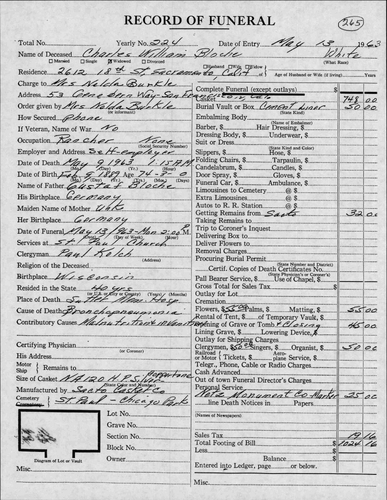 RECORD OF FUNERAL
265
Total No. Yearly No. 224 Date of Entry May 13 1963
Name of Deceased Charles William Bloche White
(What Race)
Married Single Widowed Divorced Husband Wife Widow of
Residence 2612 18th St. Sacramento, Calif Age of Husband or Wife (if living) Years
Charge to Mrs Nelda Burkle Complete Funeral (except outlays)
Address Casket 748 00
Order given by Mrs Nelda Burkle Burial Vault or Box Cement Liner 50 00
How Secured Phone Embalming Body
If Veteran, Name of War No Barber, $ Hair Dressing, $
Occupation Rancher None Dressing Body, $ Underwear, $
Suit or Dress
Employer and Address Self-employer Slippers, $ Hose, $
Date of Death May 9, 1963 1:15 A.M. Folding Chairs, $ Tarpaulin, $
Date of Birth Feb 9, 1889 Age 74-3-0 Candelabrum, $ Candles, $
Door Spray, $ Gloves, $
Name of Father Gustav Bloche Funeral Car, $ Ambulance, $
His Birthplace Germany Limousines to Cemetery @ $
Maiden Name of Mother White Extra Limousines @ $
Her Birthplace Germany Autos to R. R. Station @ $
Getting Remains from Sacto 32 00
Date of Funeral May 13, 1963 - Mon 2:00 P Taking Remains to
Services at St. Paul Church Trip to Coroner's Inquest
Delivering Box to
Clergyman Paul Kolch Deliver Flowers to
Religion of the Deceased Removal Charges
Procuring Burial Permit
Birthplace Wisconsin Certif. Copies of Death Certificates No.
Resided in the State 40 yrs Pall Bearer Service, $ Use of Chapel, $
Place of Death Sutter Mem. Hosp. Gross Total for Sales Tax
Outlay for Lot
Cause of Death Bronchopneumonia Cremation
Flowers, $ Palms, $ Matting, $ 55 00
Contributory Causes Rental of Tent, $ of Temporary Vault, $
Opening of Grave or Tomb + Closing 45 00
Certifying Physician Lining Grave, $ Device, $
(or Coroner) Outlay for Shipping Charges
His Address Clergymen, $ Singers, $ Organist, $ 50 00
Motor Ship Remains to Tickets, $ Aero-plane Service, $
Telegr., Phone, Cable or Radio Charges
Size of Casket Cash Advanced
Manufactured by Sacto Casket Co Out of town Funeral Director's Charges
Cemetery Crematory St. Paul - Chicago Park Personal Service
Notz Monument Co Marker 25 00
Lot No. line Death Notices in Papers
Grave No. (Names of Newspapers)
Section No. Sales Tax 19 16
Block No. Total Footing of Bill 1024 16
Owner Less
Balance
Diagram of Lot or Vault Entered into Ledger, page or below.
Misc. Misc.